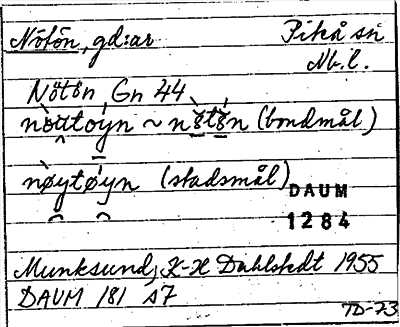 Nötön, gd:ar Piteå sn
Nb. l.
Nötön, Gn 44
nòu̯tóyn ~ nö̀tö́n (bondmål)
nø̀y̯tǿy̯n (stadsmål)
DAUM
1284
Munksund, K-H Dahlstedt 1955
DAUM 181 s7
TD-73